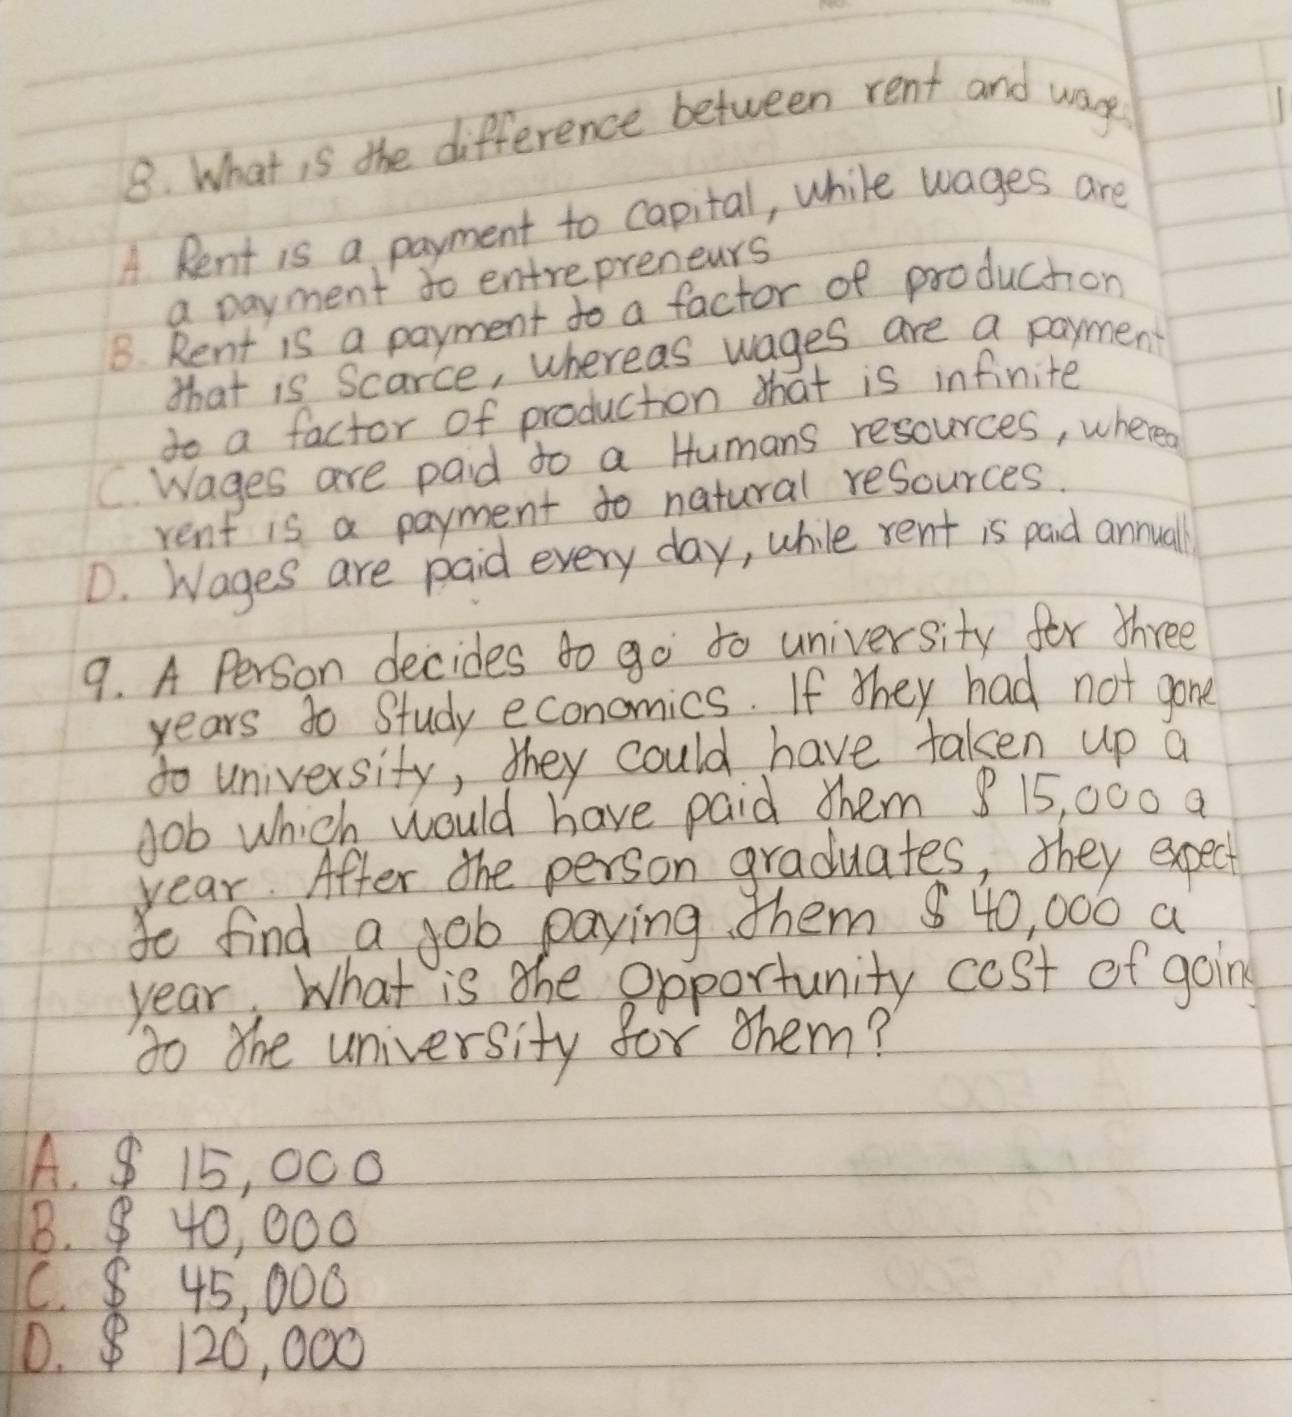 8. What is the difference between rent and wages
A. Rent is a payment to capital, while wages are
a payment to entrepreneurs
B. Rent is a payment to a factor of production
that is scarce, whereas wages are a payment
to a factor of production that is infinite
C. Wages are paid to a Humans resources, wherea
rent is a payment to natural resources.
D. Wages are paid every day, while rent is paid annually
9. A Person decides to go to university for three
years to study economics. If they had not gone
to university, they could have taken up a
job which would have paid them $ 15,000 a
year. After the person graduates, they expect
to find a job paying them $ 40,000 a
year. What is the opportunity cost of going
to the university for them?
A. $ 15,000
B. $ 40,000
C. $ 45,000
D. $ 120,000